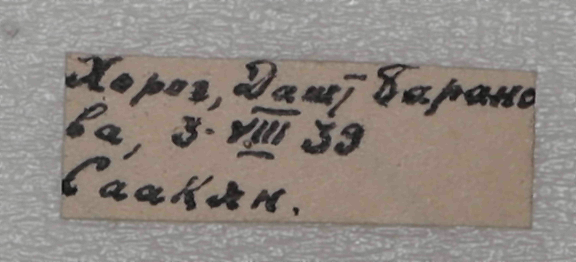 Хорог, Дашт Барано
ва, 3. VIII 39
Саакян.